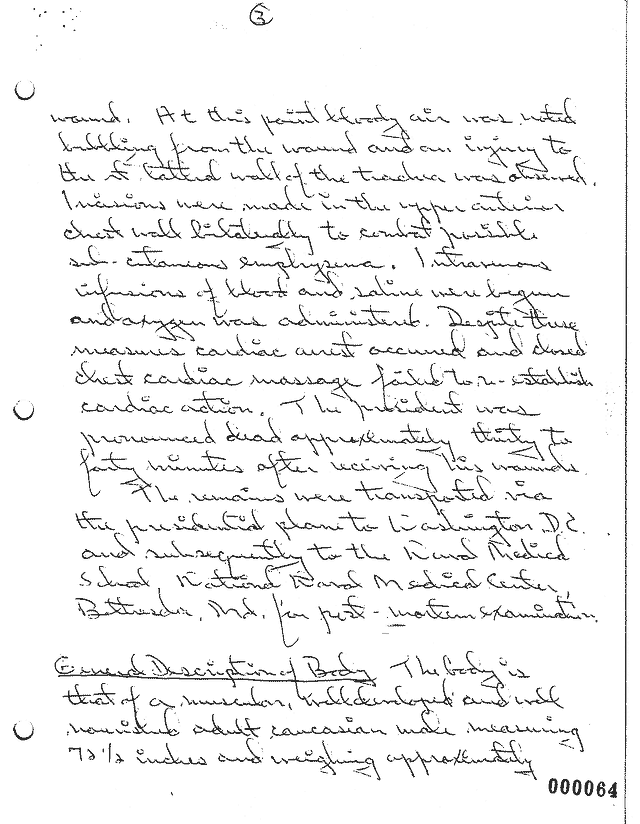 3
wound. At this point bloody air was noted
bubbling from the wound and an injury to
the rt. lateral wall of the trachea was observed.
Incisions were made in the upper anterior
chest wall bilaterally to combat possible
sub-cutaneous emphysema. Intravenous
infusions of blood and saline were begun
and oxygen was administered. Despite these
measures cardiac arrest occurred and closed
chest cardiac massage failed to re-establish
cardiac action. The president was
pronounced dead approximately thirty to
forty minutes after receiving his wounds.
The remains were transported via
the presidential plane to Washington, D.C.
and subsequently to the Naval Medical
School, National Naval Medical Center,
Bethesda, Md. for post-mortem examination.
General Description of Body The body is
that of a muscular, well developed and well
nourished adult caucasian male measuring
72 1/2 inches and weighing approximately
000064